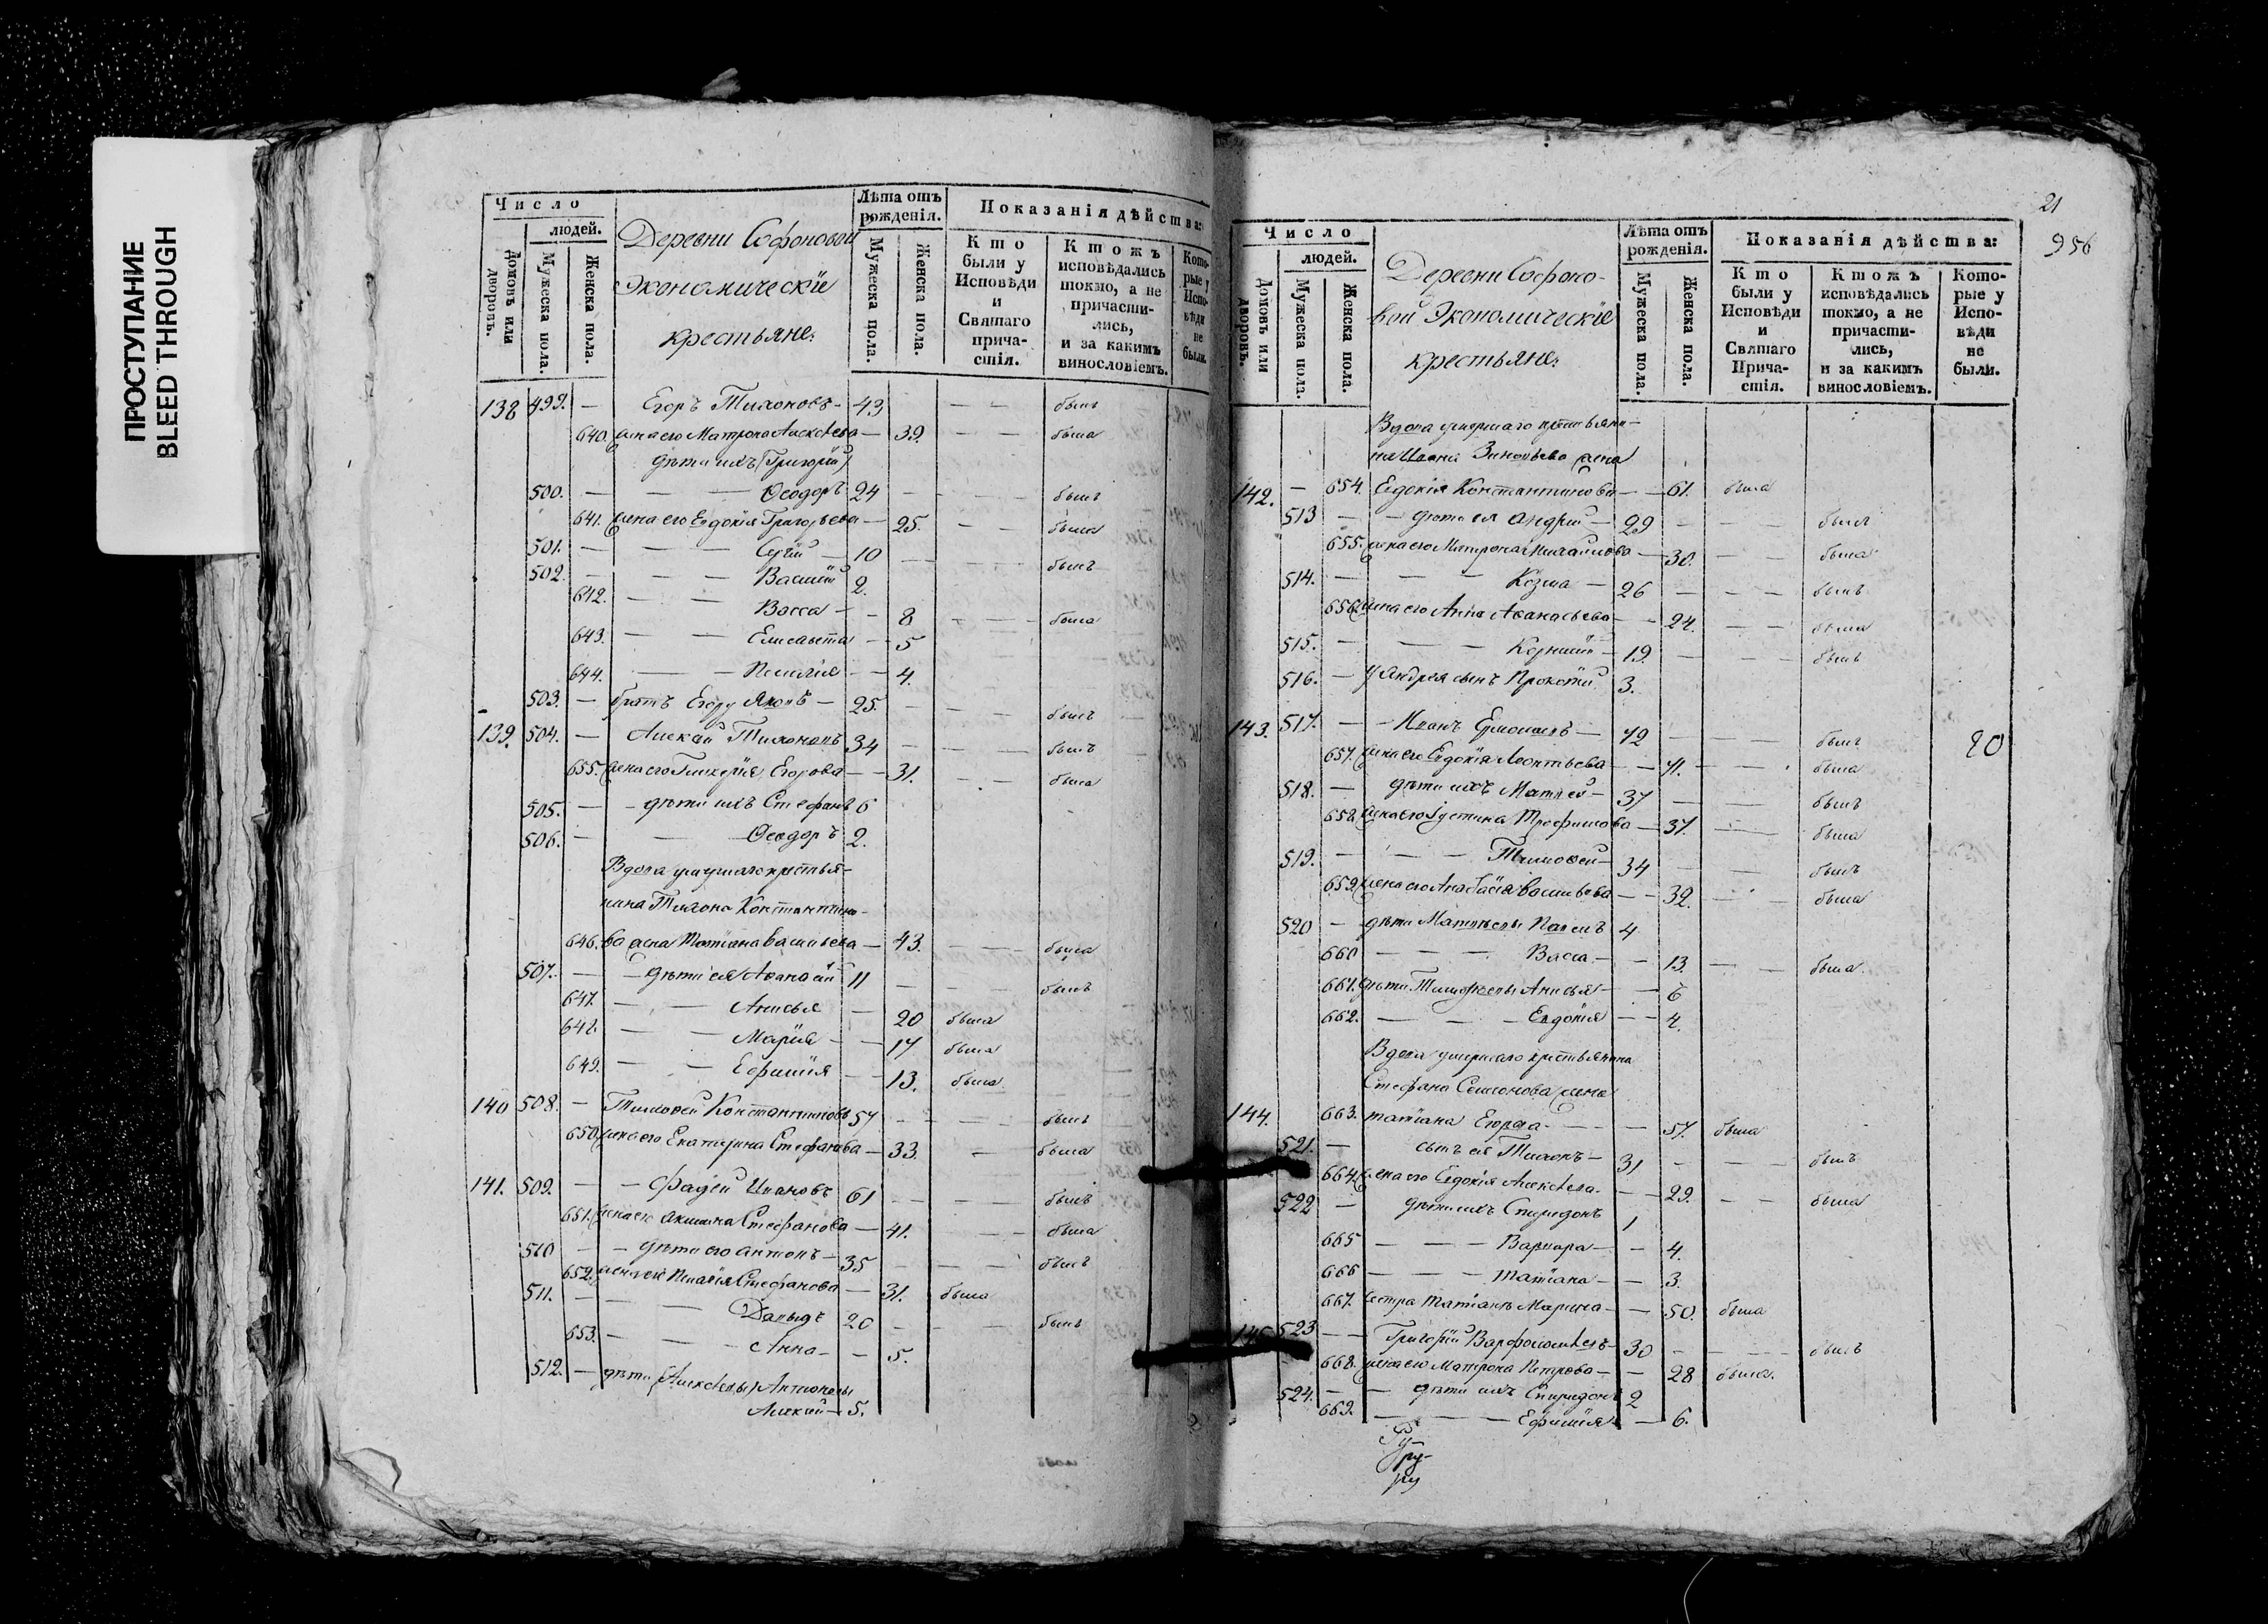 ПРОСТУПАНИЕ
BLEED THROUGH
Число
людей.
Домовъ или дворовъ.
Мужеска пола.
Женска пола.
Деревни Софоновой
Экономическіе
крестьяне:
Лѣта отъ рожденія.
Мужеска пола.
Женска пола.
Показанія дѣйства:
Кто были у Исповѣди и Святаго прича-стія.
Ктожъ исповѣдались токмо, а не причасти-лись, и за какимъ винословіемъ.
Кото-рые у Испо-вѣди не были.
138 499. — Егоръ Тихоновъ — 43 — — былъ
640. жена его Матрона Алексѣева — 39. — — была
дѣти ихъ (Григорій)
500. — — Ѳеодоръ 24 — — былъ
641. жена его Евдокія Григорьева — 25. — — была
501. — — — 10 — — былъ
502. — — — Василій 2.
642. — — Васса — — 8 — — была
643. — — Елисавета — 5
644. — — Пелагія — — 4.
503. — братъ Егору Яковъ — 25. — — былъ
139. 504. — Алексѣй Тихоновъ 34 — — былъ
655. жена его Гликерія Егорова — — 31. — — была
505. — — дѣти ихъ Стефанъ 6
506. — — Ѳеодоръ 2.
Вдова умершаго крестья-
нина Тихона Константино-
646. ва жена Татіана Васильева — 43. — — была
507. — — дѣти ея Аѳанасій 11 — — былъ
647. — — Анисья — 20 была
648. — — Марія — — 17 была
649. — — Ефимія — — 13. была
140 508. — Тимоѳей Константиновъ 57 — — былъ
650. жена его Екатерина Стефанова — 33. — была
141. 509. — — Фадей Ивановъ 61 — — былъ
651. жена его Акилина Стефанова — 41. — — была
510 — — дѣти его Антонъ — 35 — — былъ
652. жена его Пелагія Стефанова — 31. была
511. — — — Давыдъ 20 — — былъ
653. — — — Анна — — 5.
512. — дѣти (Алексѣевы) Антоновы
Алексѣй — 5.
21
956
Число
людей.
Домовъ или дворовъ.
Мужеска пола.
Женска пола.
Деревни Софоно-
вой Экономическіе
крестьяне:
Лѣта отъ рожденія.
Мужеска пола.
Женска пола.
Показанія дѣйства:
Кто были у Исповѣди и Святаго Прича-стія.
Ктожъ исповѣдались токмо, а не причасти-лись, и за какимъ винословіемъ.
Кото-рые у Испо-вѣди не были.
Вдова умершаго крестьяни-
на Ивана Зиновьева жена
142. — 654. Евдокія Константинова — — 61. была
513 — — дѣти ея Андрей — 29 — — былъ
655. жена его Матрона Михайлова — 30. — была
514. — — — Козма — 26 — — былъ
656. жена его Анна Аѳанасьева — — 24. — — была
515. — — — Корнилій — 19. — — былъ
516. — у Андрея сынъ Прокопій 3.
143. 517. — — Иванъ Ермолаевъ — 72 — — былъ 20
657. жена его Евдокія Леонтьева — — 71. — — была
518. — дѣти ихъ Матвей — 37 — — былъ
658. жена его Іустина Трофимова — 37. — — была
519. — — — Тимоѳей — 34 — — былъ
659. жена его Анастасія Васильева — — 32. — — была
520 — дѣти Матвѣевы Павелъ 4
660 — — — Васса — — 13. — — была
661. дѣти Тимоѳеевы Анисья — — 6
662. — — — Евдокія — — 4.
Вдова умершаго крестьянина
Стефана Семионова жена
144. 663. Татіана Егорова — — — 57. была
521. — сынъ ея Тихонъ — 31 — — былъ
664. жена его Евдокія Алексѣева — — 29. — — была
522 — дѣти ихъ Спиридонъ 1
665 — — — Варвара — — 4.
666 — — — Татіана — — 3.
667. сестра Татіанѣ Марина — — 50. была
145 523 — — Григорій Варфоломѣевъ — 30 — — былъ
668. жена его Матрона Петрова — — 28 была.
524. — — дѣти ихъ Спиридонъ 2
669. — — — Ефимія — — 6.